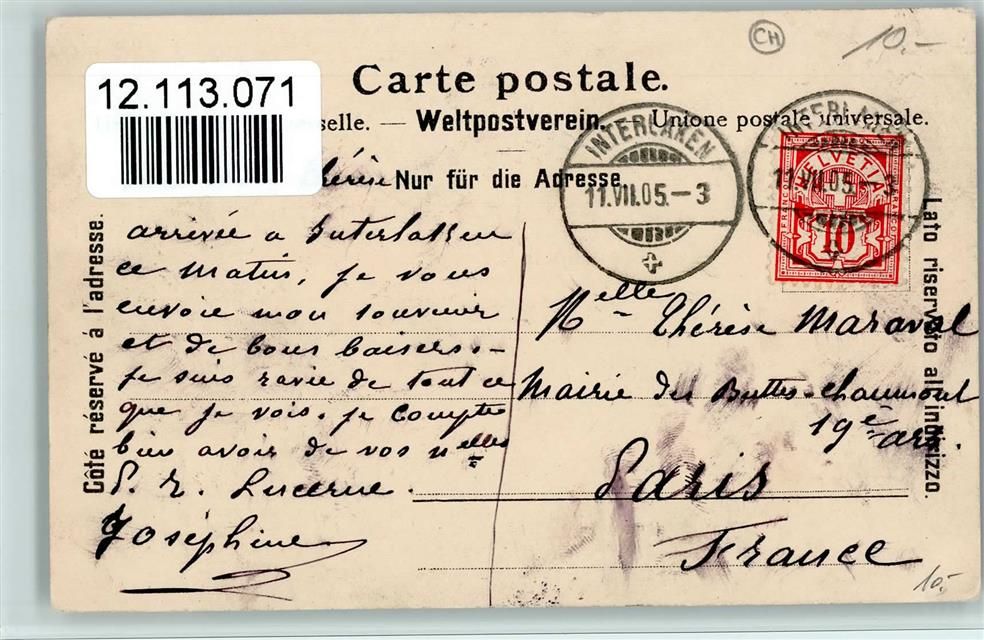 CH
10.-
12.113.071
Carte postale.
selle. — Weltpostverein. — Unione postale universale.
Nur für die Adresse
Côté réservé à l'adresse.
Lato riservato all'indirizzo.
INTERLAKEN
11.VII.05.-3
INTERLAKEN
11.VII.05.-3
HELVETIA
FRANCO
10
érèse
arrivée a Interlaken
ce matin, je vous
envoie mon souvenir
et de bons baisers.-
je suis ravie de tout ce
que je vois. je compte
bien avoir de vos nelles
P. R. Lucerne.
Joséphine
Melle Thérèse Maraval
Mairie des Buttes-Chaumont
19e arr.
Paris
France
10.-